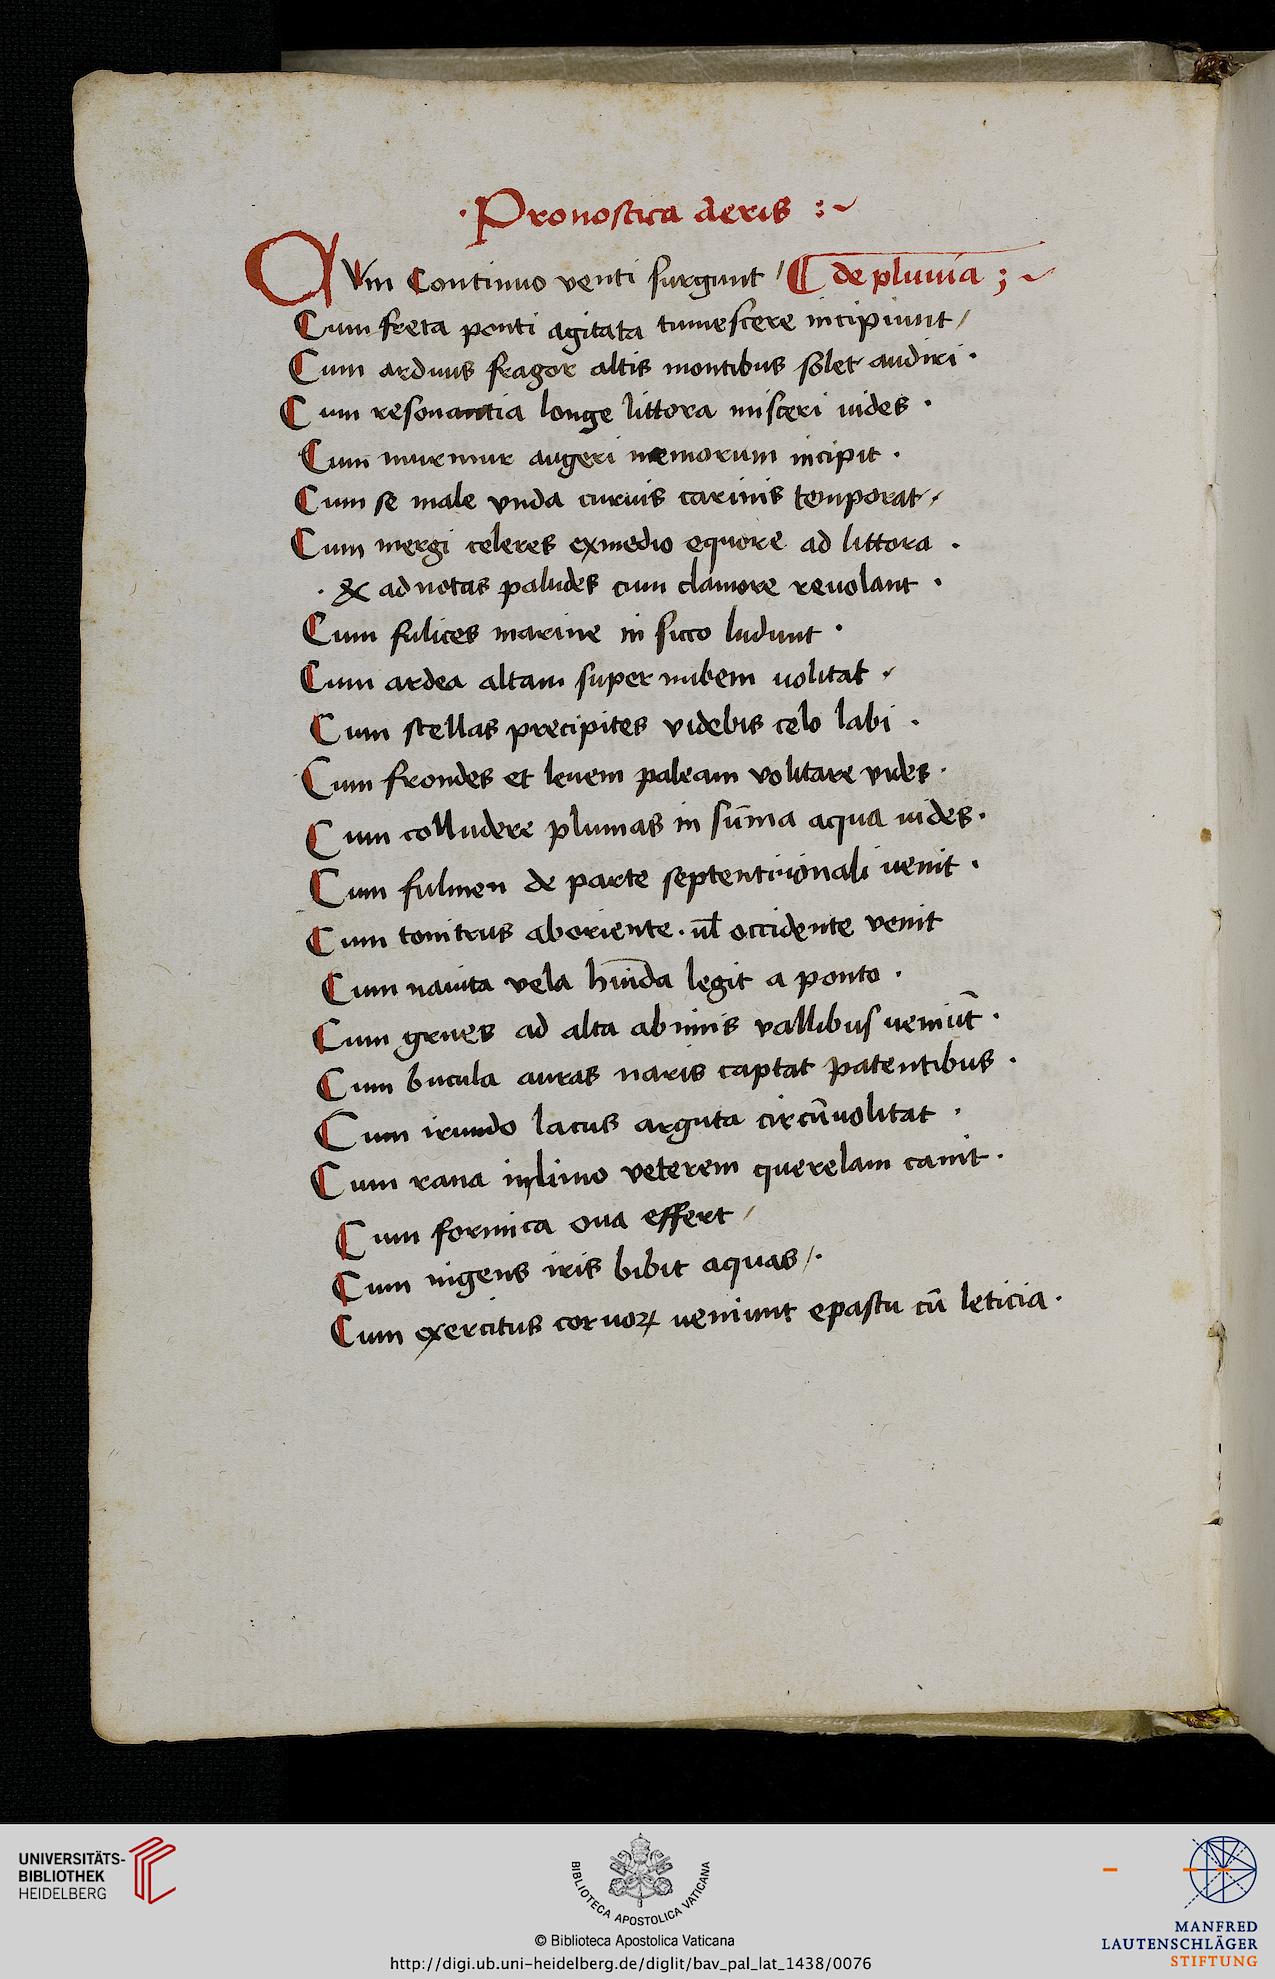 ·Pronostica aeris :~
Qum Continuo venti surgunt / C de pluuia ;~
Cum freta ponti agitata tumescere incipiunt /
Cum arduus fragor altis montibus solet audiri ·
Cum resonantia longe littora misceri uides ·
Cum murmur augeri nemorum incipit ·
Cum se male vnda curuis carinis temporat /
Cum mergi celeres exmedio equore ad littora ·
· & ad notas paludes cum clamore reuolant ·
Cum fulices marine in sicco ludunt ·
Cum ardea altam super nubem uolitat /
Cum stellas precipites videbis celo labi ·
Cum frondes et leuem paleam volitare vides ·
Cum colludere plumas in sum̄a aqua uides ·
Cum fulmen de parte septentrionali uenit ·
Cum tonitrus aboriente · ul̄ occidente venit
Cum nauita vela legit a ponto ·
Cum grues ad alta abimis vallibus ueniūt ·
Cum bucula auras naris captat patentibus ·
Cum irundo lacus arguta circūuolitat ·
Cum rana inlimo veterem querelam canit ·
Cum formica oua effert /
Cum ingens iris bibit aquas /·
Cum exercitus coruoꝝ ueniunt epastu cū leticia ·
UNIVERSITÄTS-
BIBLIOTHEK
HEIDELBERG
BIBLIOTECA APOSTOLICA VATICANA
© Biblioteca Apostolica Vaticana
http://digi.ub.uni-heidelberg.de/diglit/bav_pal_lat_1438/0076
MANFRED
LAUTENSCHLÄGER
STIFTUNG